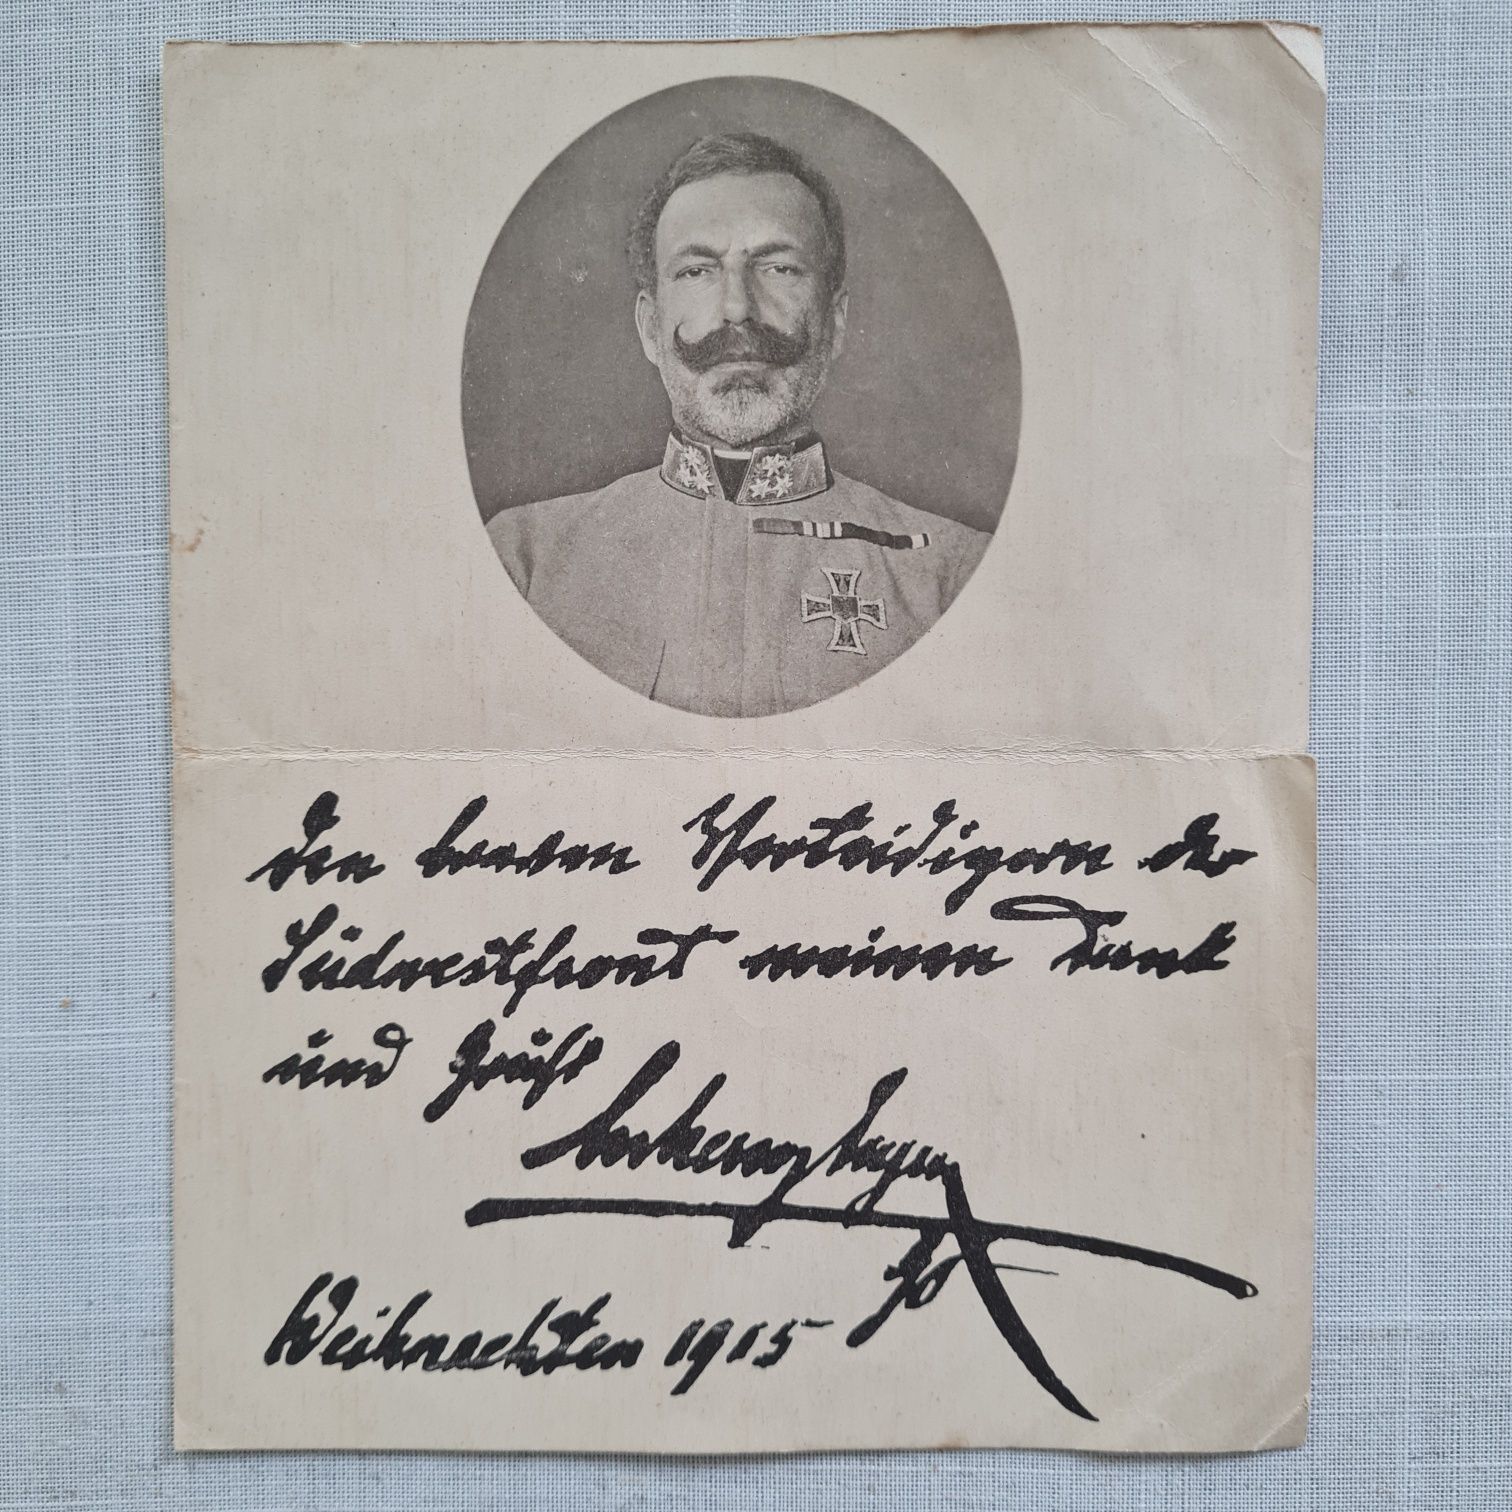 Den braven Verteidigern der
Südwestfront meinen Dank
und Grüße
Weihnachten 1915